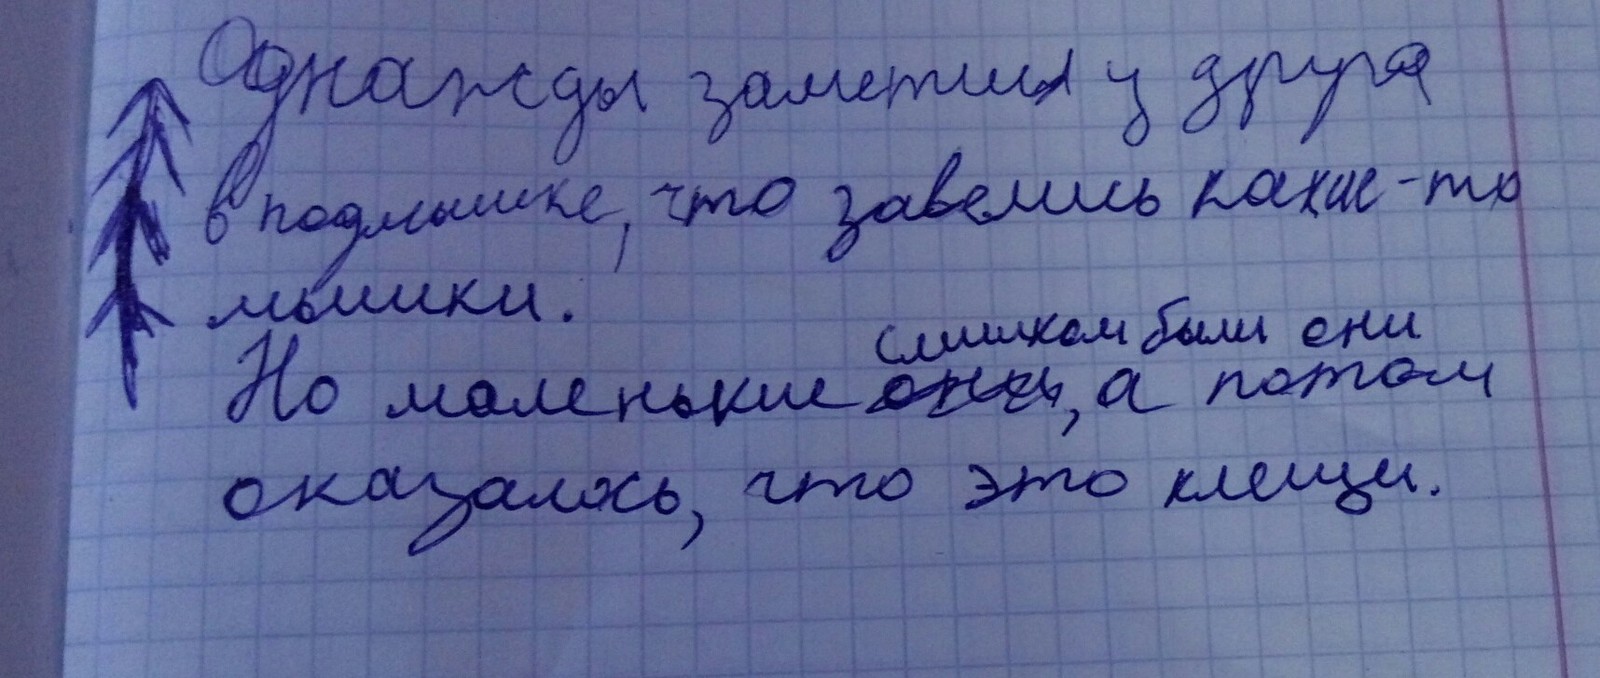 Однажды заметил у друга
в подмышке, что завелись какие-то
мышки.
слишком были они
Но маленькие они, а потом
оказалось, что это клещи.